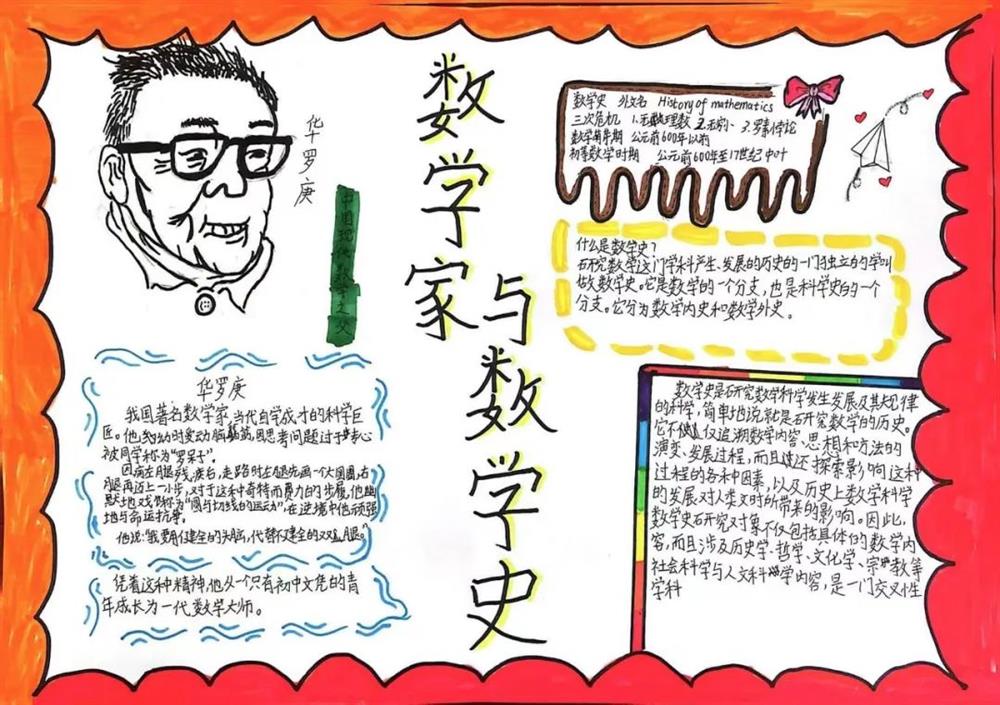 数学家
与数学史
华罗庚
中国现代数学之父
华罗庚
我国著名数学家,当代自学成才的科学巨
匠。他幼时爱动脑筋,因思考问题过于专心
被同学称为“罗呆子”。
因病左腿残疾后,走路时左腿先画一大圆圈,右
腿再迈上一小步,对于这种奇特而费力的步履,他幽
默地戏称为“圆与切线的运动”,在逆境中他顽强
地与命运抗争。
他说:“我要用健全的头脑,代替不健全的双腿。”
凭着这种精神,他从一个只有初中文凭的青
年成长为一代数学大师。
数学史 外文名 History of mathematics
三次危机 1.无理数 2.无穷小 3.罗素悖论
数学萌芽期 公元前600年以前
初等数学时期 公元前600年至17世纪中叶
什么是数学史?
研究数学这门学科产生、发展的历史的一门独立的学叫
做数学史。它是数学的一个分支,也是科学史的一个
分支。它分为数学内史和数学外史。
数学史是研究数学科学发生发展及其规律
的科学,简单地说就是研究数学的历史。
它不仅追溯数学内容、思想和方法的
演变、发展过程,而且还探索影响这种
过程的各种因素,以及历史上数学科学
的发展对人类文明所带来的影响。因此,
数学史研究对象不仅包括具体的数学内
容,而且涉及历史学、哲学、文化学、宗教等
社会科学与人文科学内容,是一门交叉性
学科